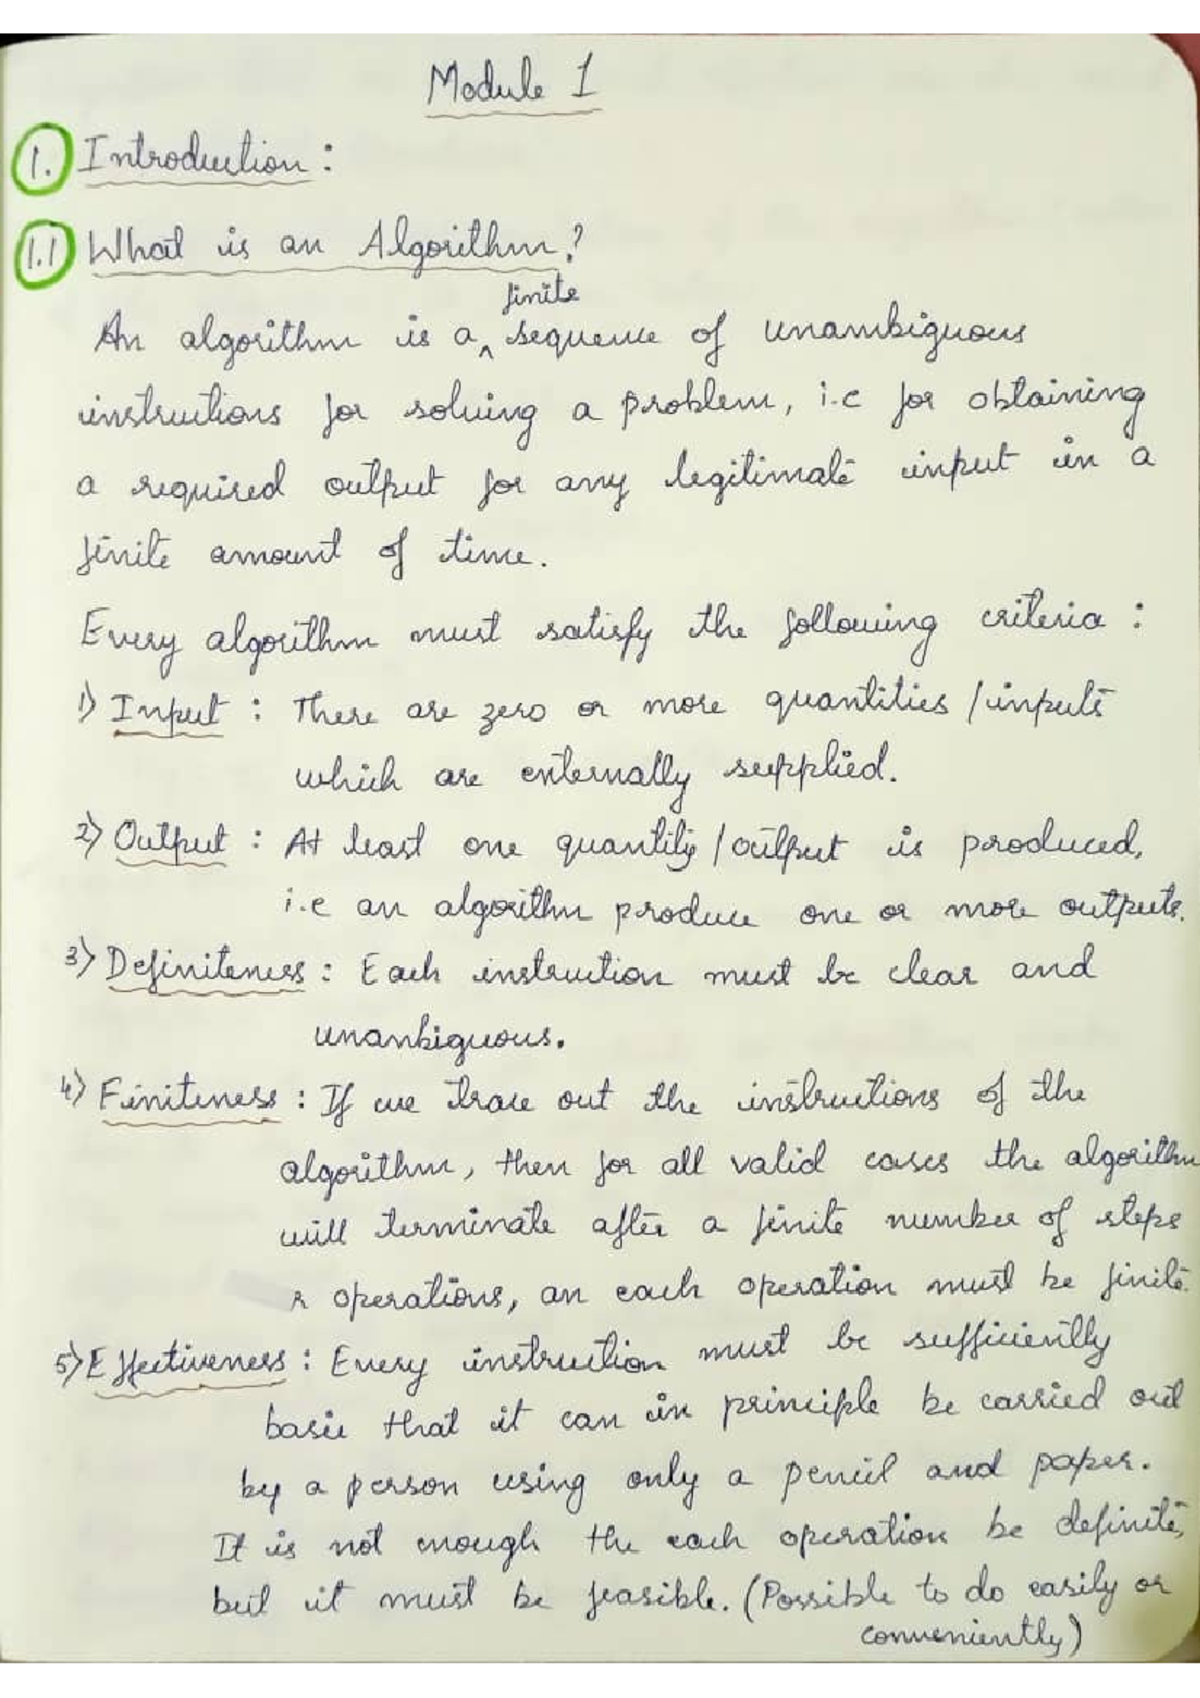 Module 1
1. Introduction :
1.1 What is an Algorithm?
finite
An algorithm is a ^ sequence of unambiguous
instructions for solving a problem, i.e for obtaining
a required output for any legitimate input in a
finite amount of time.
Every algorithm must satisfy the following criteria :
1) Input : There are zero or more quantities / inputs
which are externally supplied.
2) Output : At least one quantity / output is produced,
i.e an algorithm produce one or more outputs.
3) Definiteness : Each instruction must be clear and
unambiguous.
4) Finiteness : If we trace out the instructions of the
algorithm, then for all valid cases the algorithm
will terminate after a finite number of steps
operations, an each operation must be finite.
5) Effectiveness : Every instruction must be sufficiently
basic that it can in principle be carried out
by a person using only a pencil and paper.
It is not enough the each operation be definite,
but it must be feasible. (Possible to do easily or
conveniently)